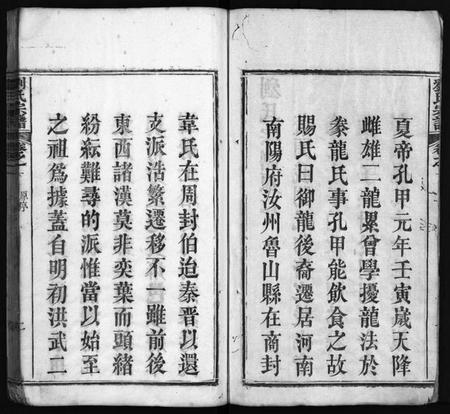 夏帝孔甲元年壬寅歲天降
雌雄二龍累曾學擾龍法於
豢龍氏事孔甲能飲食之故
賜氏曰御龍後裔遷居河南
南陽府汝州魯山縣在商封
韋氏在周封伯迨秦晉以還
支派浩繁遷移不一雖前後
東西諸漢莫非奕葉而頭緒
紛紜難尋的派惟當以始至
之祖爲據蓋自明初洪武二
劉氏宗譜
原序